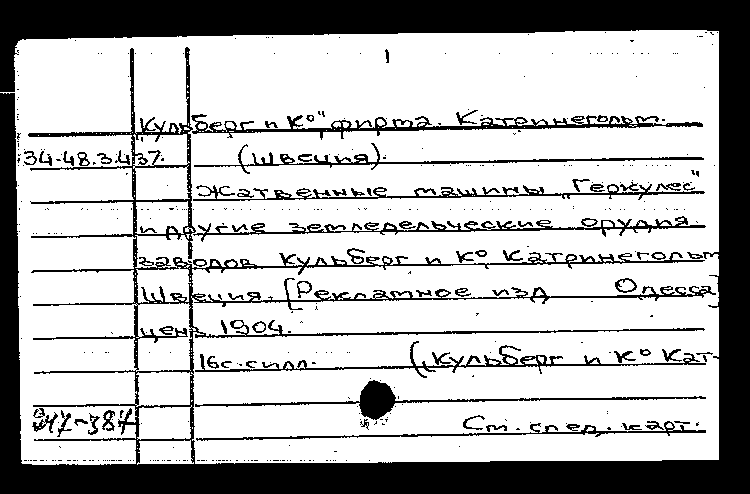 1
"Кульберг и К°", фирма. Катринегольм.
34-48.3.437. (Швеция).
Жатвенные машины „Геркулес"
и другие земледельческие орудия
заводов Кульберг и К° Катринегольм
Швеция. [Рекламное изд Одесса]
ценз 1904.
16с. с илл. („Кульберг и К° Кат-
См. след. карт.